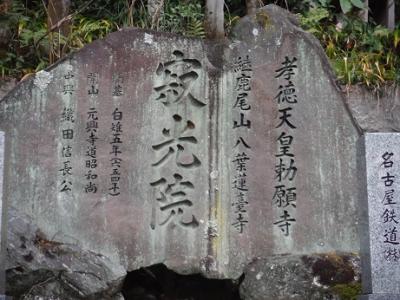 孝徳天皇勅願寺
継鹿尾山八葉蓮臺寺
寂光院
創基 白雉五年(六五四年)
開山 元興寺道昭和尚
中興 織田信長公
名古屋鉄道㈱